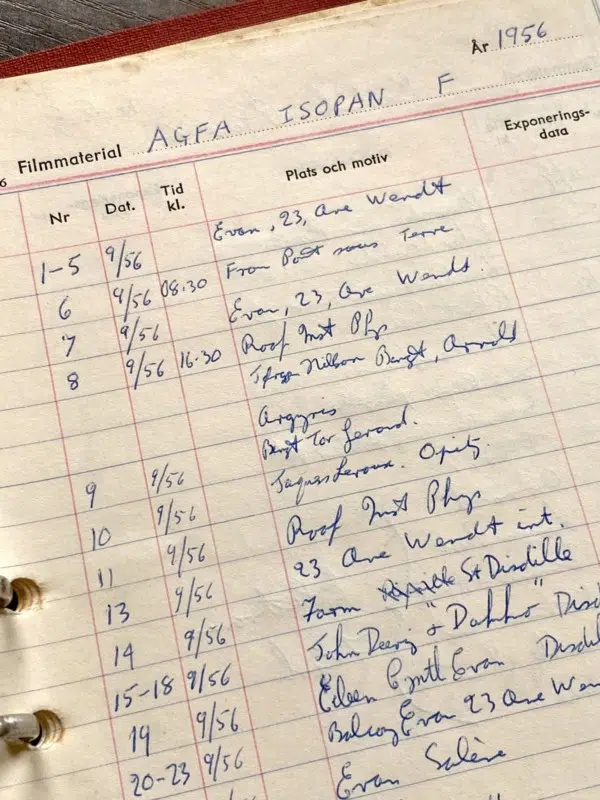 År 1956
6 Filmmaterial AGFA ISOPAN F
Nr Dat. Tid kl. Plats och motiv Exponerings-data
1-5 9/56 Evan, 23, Ave Wendt
6 9/56 08.30 From Pont sous Terre
7 9/56 Evan, 23, Ave Wendt.
8 9/56 16.30 Roof Inst Phys
Nilson Bengt, Arnold
Argyris
Bengt Tor Gerard.
9 9/56 Jaques Leroux. Opitz
10 9/56 Roof Inst Phys
11 9/56 23 Ave Wendt int.
13 9/56 Farm St Disdille
14 9/56 John Deery & "Dahho"
15-18 9/56 Eileen Cynth Evan
19 9/56 Balcony Evan 23 Ave
20-23 9/56 Evan Salève